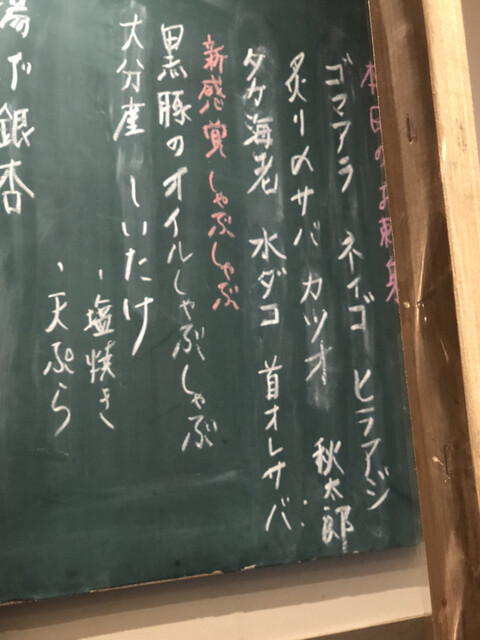 本日のお刺身
ゴマアラ ネイゴ ヒラアジ
炙り〆サバ カツオ 秋太郎
タカ海老 水ダコ 首オレサバ
新感覚しゃぶしゃぶ
黒豚のオイルしゃぶしゃぶ
大分産 しいたけ
・塩焼き
・天ぷら
湯で銀杏